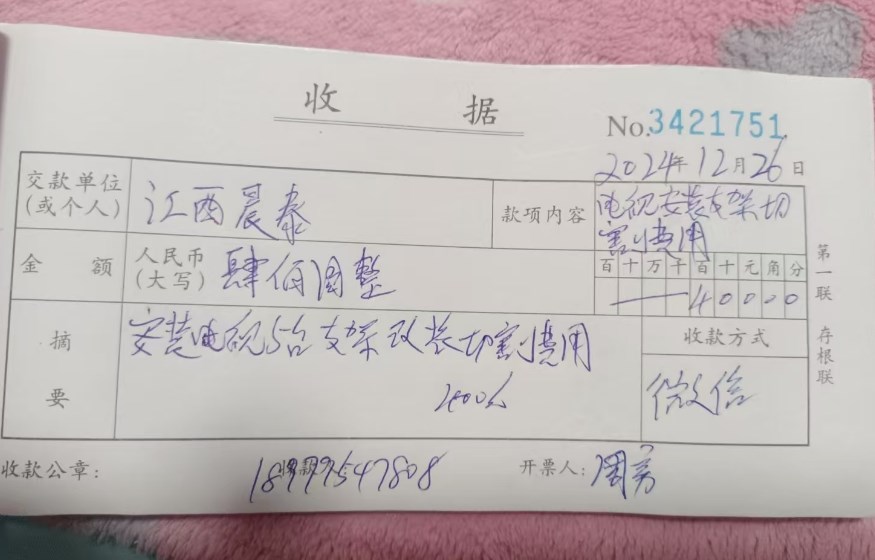 收据
No.3421751
2024年12月26日
交款单位(或个人) 江西晨泰 款项内容 电视安装支架切割费用
金额 人民币(大写) 肆佰圆整 百十万千百十元角分
40000
摘要 安装电视5台支架改装切割费用
400元
收款方式
微信
第一联 存根联
收款公章: 开票人:周芳